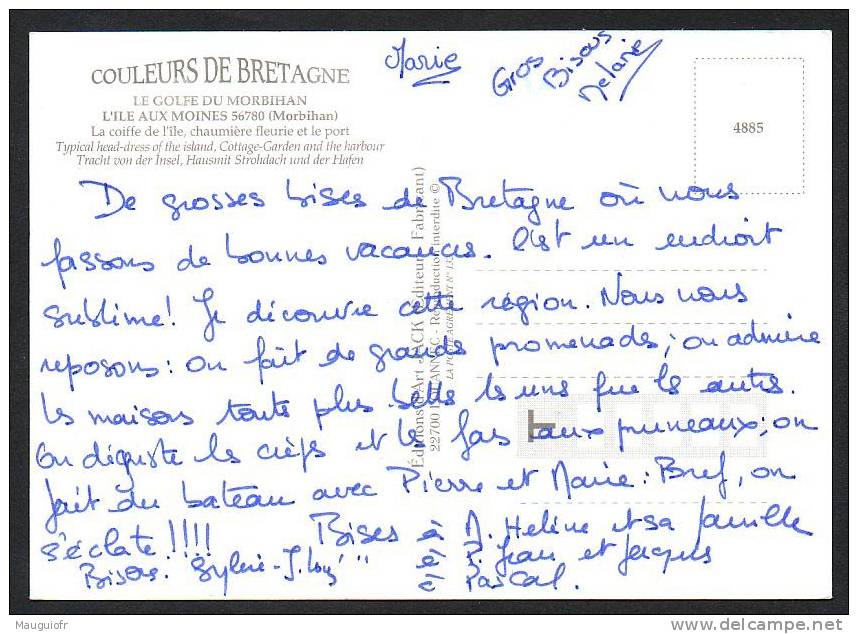 Marie
Gros
Bisous
Melanie
COULEURS DE BRETAGNE
LE GOLFE DU MORBIHAN
L'ILE AUX MOINES 56780 (Morbihan)
La coiffe de l'île, chaumière fleurie et le port
Typical head-dress of the island, Cottage-Garden and the harbour
Tracht von der Insel, Hausmit Strohdach und der Hafen
4885
De grosses bises de Bretagne où nous
passons de bonnes vacances. C'est un endroit
sublime! Je découvre cette région. Nous nous
reposons: on fait de grands promenades; on admire
les maisons toute plus belle les uns que les autres.
On déguste les crêpes et les fars aux pruneaux; on
fait du bateau avec Pierre et Marie: Bref, on
s'éclate!!!! Bises à M. Helène et sa famille
Bisous. Sylvie - J. Lou " " à P. Jean et Jacques
à Pascal.
Éditions d'Art JACK Éditeur Fabricant)
22700 LOUANNEC - Reproduction interdite ©
LA POSTE AGREMENT N°
Mauguiofr
www.delcampe.net